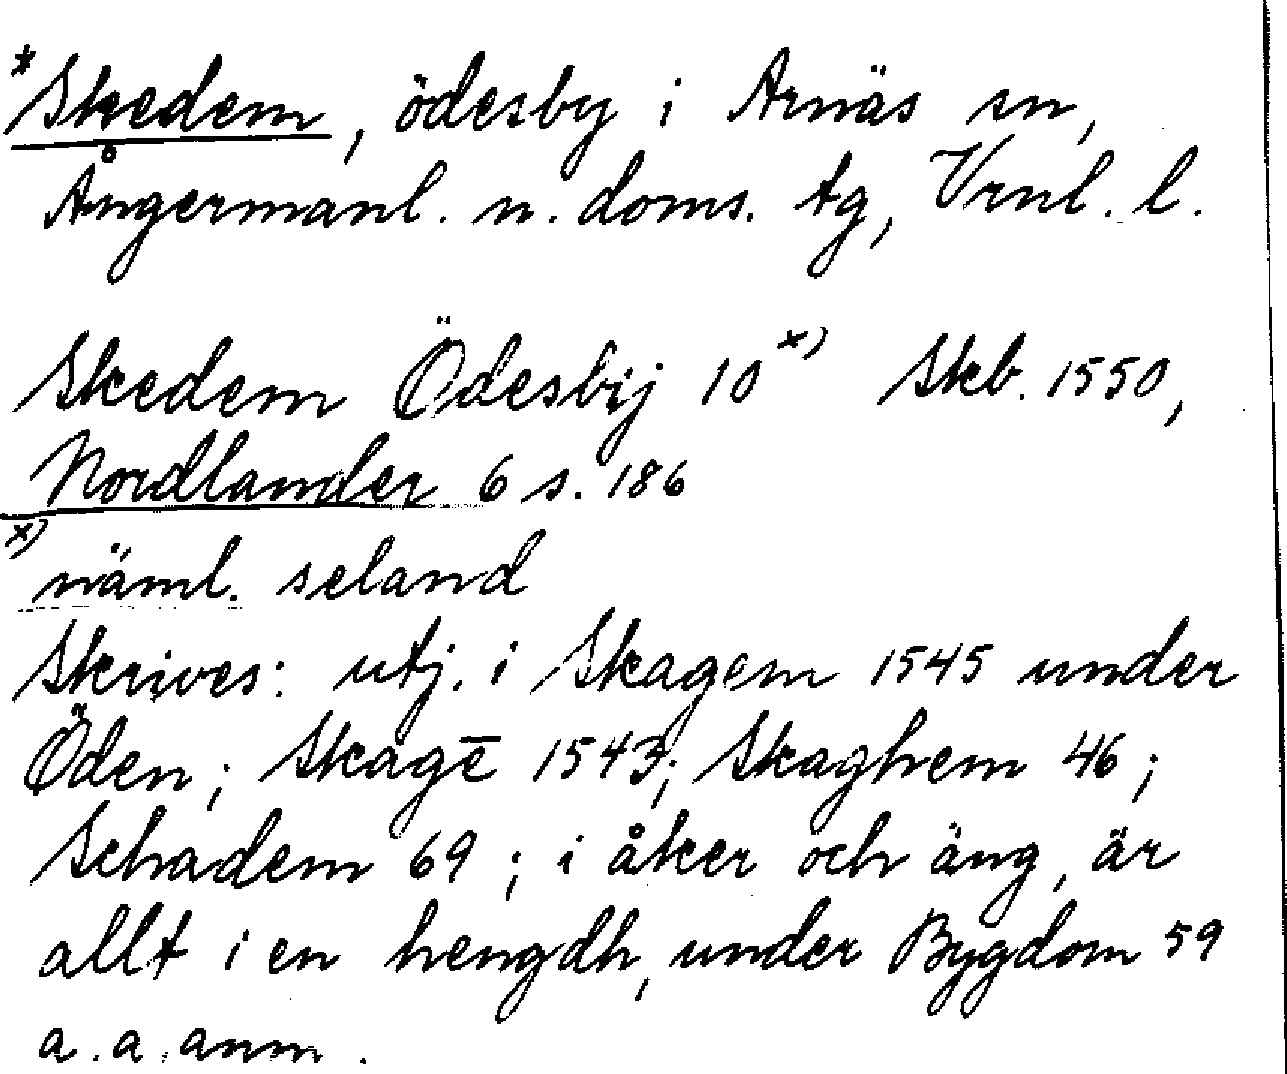 *Skedem, ödesby i Arnäs sn,
Ångermanl. n. doms. tg, Vrnl. l.
Skedem Ödesbij 10 x) Skb. 1550,
Nordlander 6 s. 186
x)
näml. seland
Skrives: utj. i Skagem 1545 under
Öden; Skagē 1543; Skaghem 46;
Schadem 69; i åker och äng, är
allt i en hengdh, under Bygdom 59
a. a. anm.